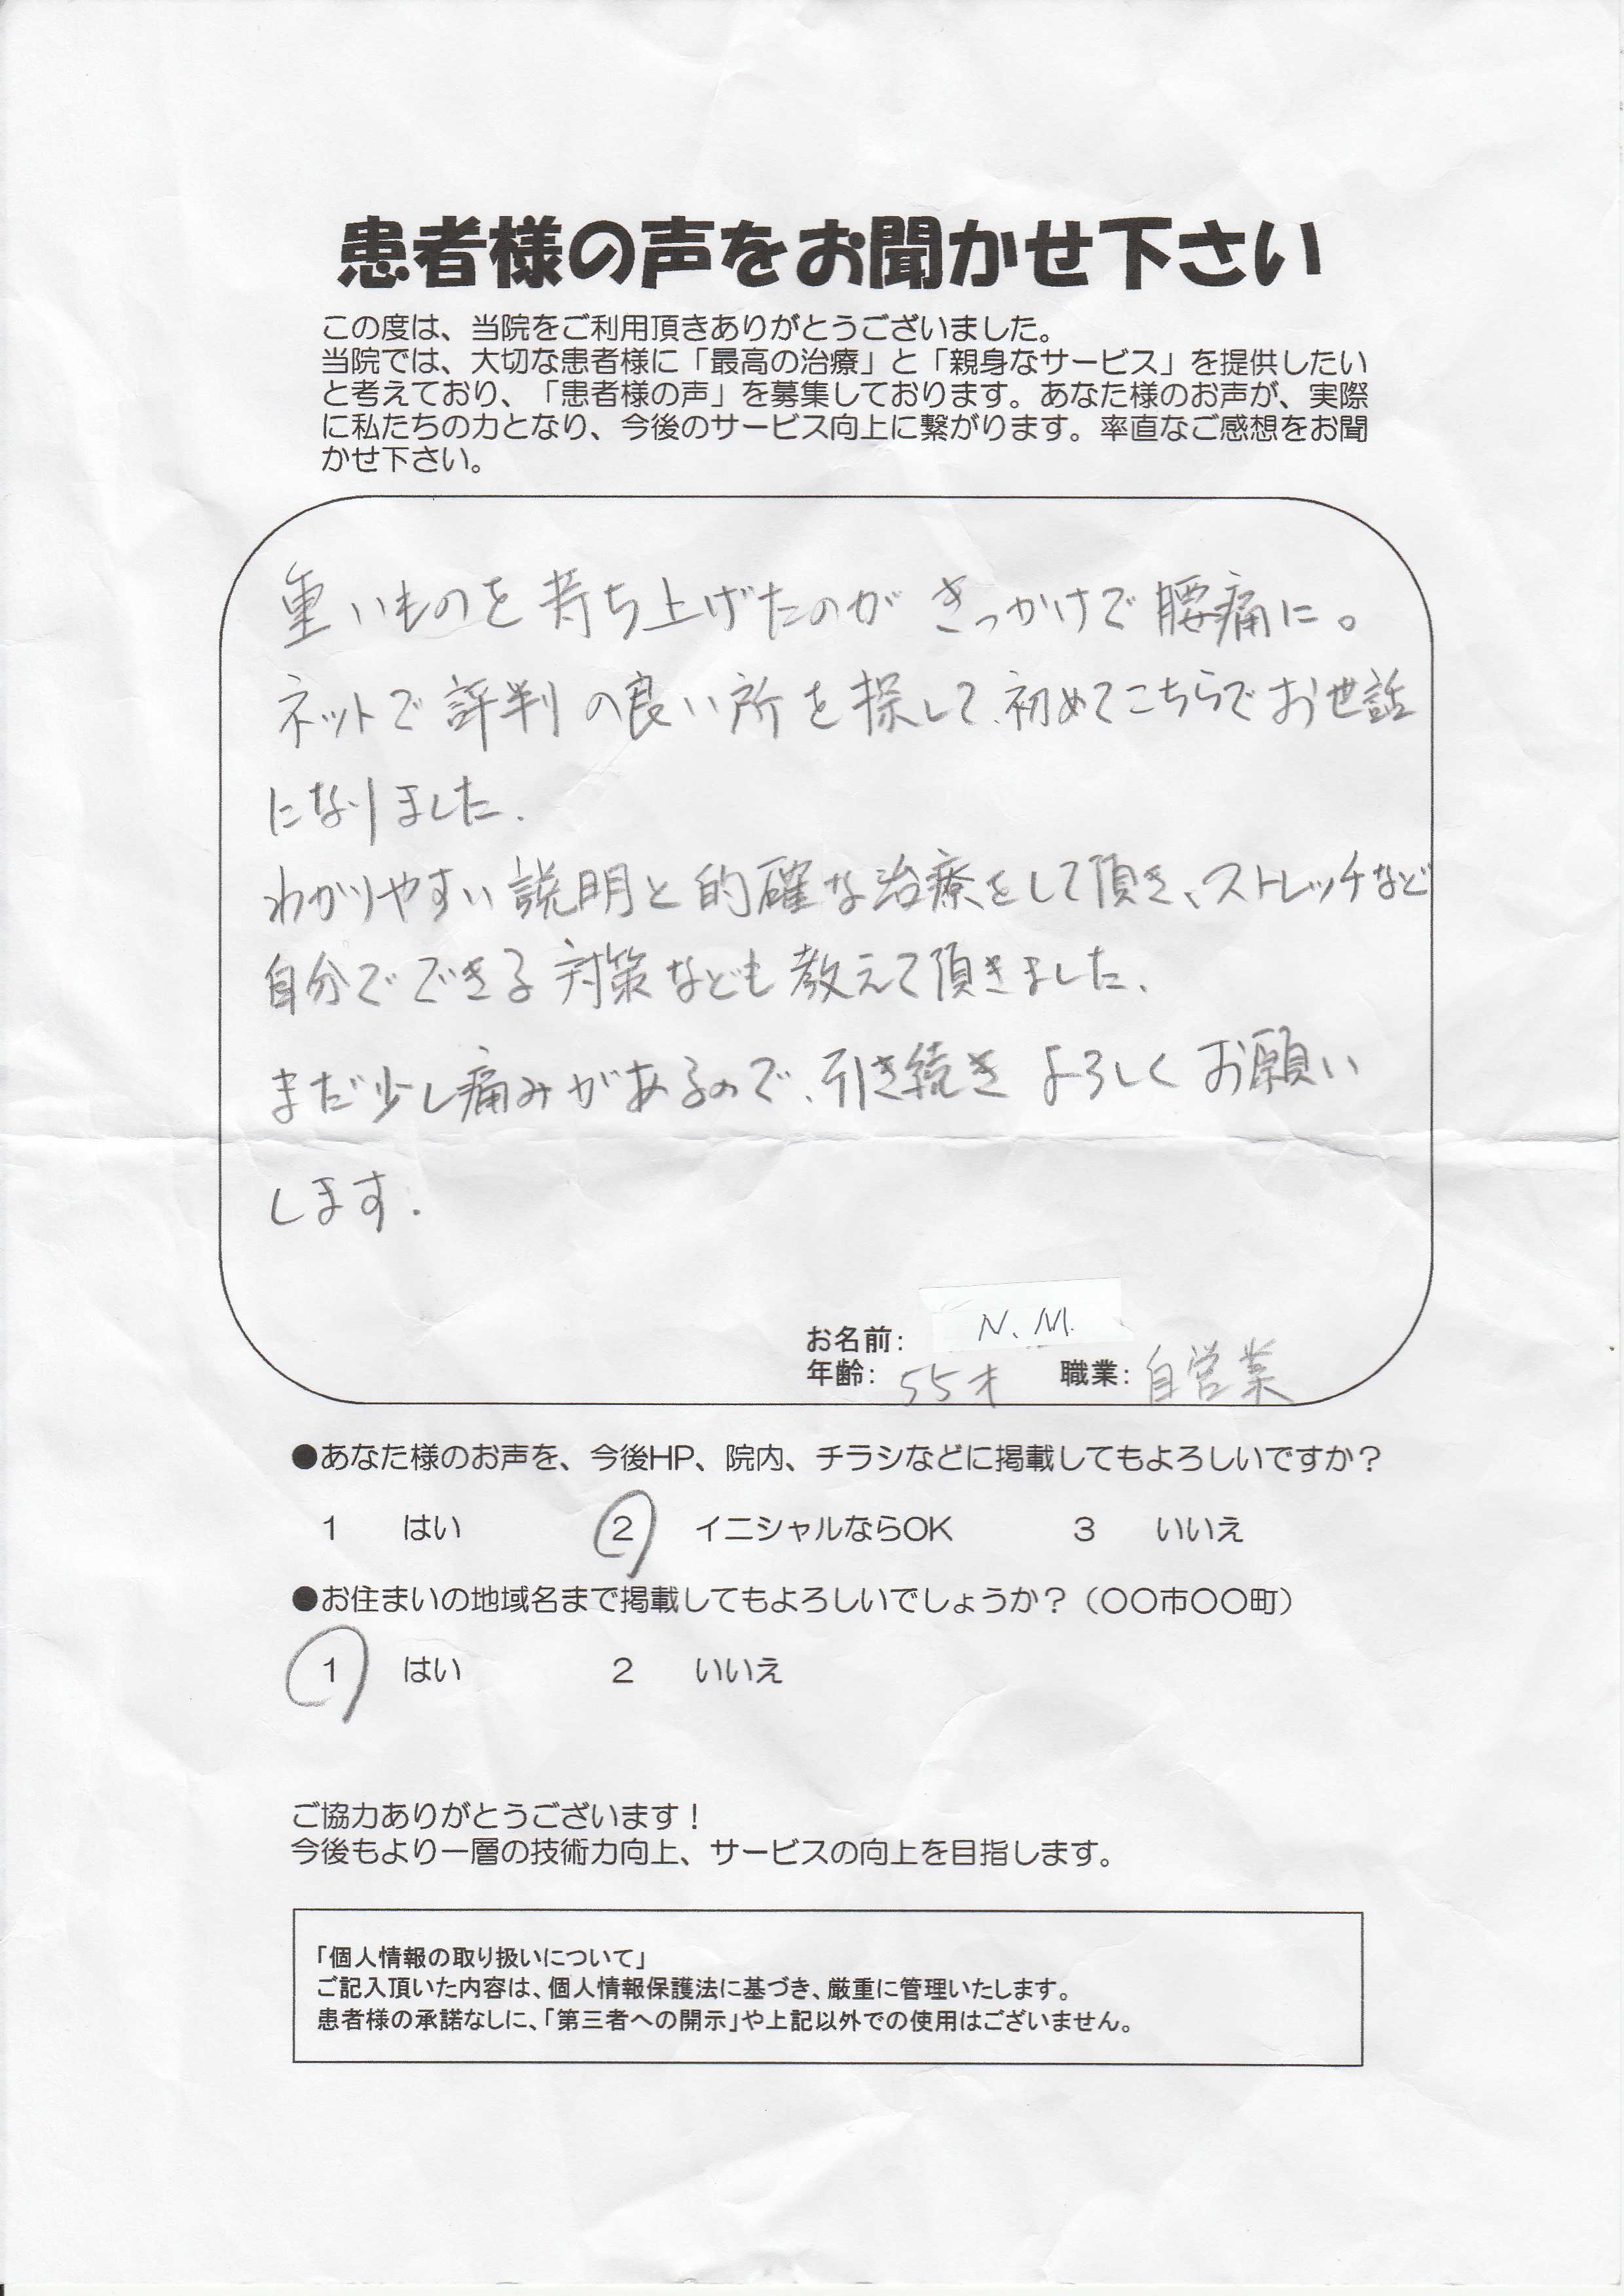 患者様の声をお聞かせ下さい
この度は、当院をご利用頂きありがとうございました。
当院では、大切な患者様に「最高の治療」と「親身なサービス」を提供したい
と考えており、「患者様の声」を募集しております。あなた様のお声が、実際
に私たちの力となり、今後のサービス向上に繋がります。率直なご感想をお聞
かせ下さい。
重いものを持ち上げたのがきっかけで腰痛に。
ネットで評判の良い所を探して、初めてこちらでお世話
になりました.
わかりやすい説明と的確な治療をして頂き、ストレッチなど
自分でできる対策なども教えて頂きました、
まだ少し痛みがあるので、引き続きよろしくお願い
します.
お名前: N、M.
年齢: 55才 職業: 自営業
●あなた様のお声を、今後HP、院内、チラシなどに掲載してもよろしいですか?
1 はい 2 イニシャルならOK 3 いいえ
●お住まいの地域名まで掲載してもよろしいでしょうか?(〇〇市〇〇町)
1 はい 2 いいえ
ご協力ありがとうございます!
今後もより一層の技術力向上、サービスの向上を目指します。
「個人情報の取り扱いについて」
ご記入頂いた内容は、個人情報保護法に基づき、厳重に管理いたします。
患者様の承諾なしに、「第三者への開示」や上記以外での使用はございません。